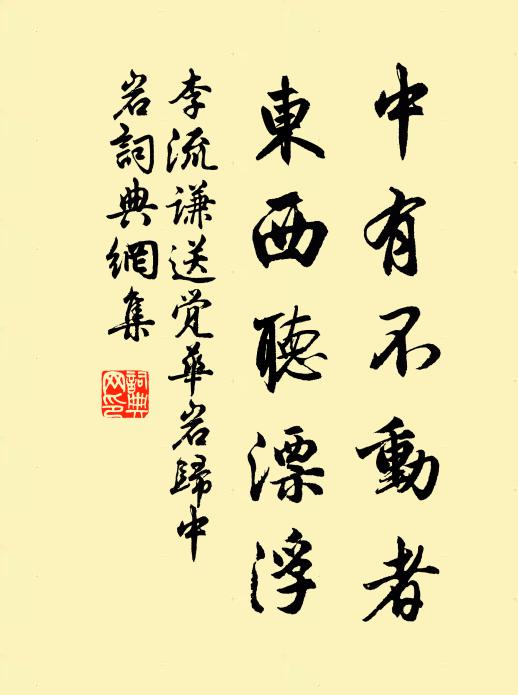 中有不動者
東西聽漂浮
李流謙送覚華岩歸中
岩詞典網集
詞典网印